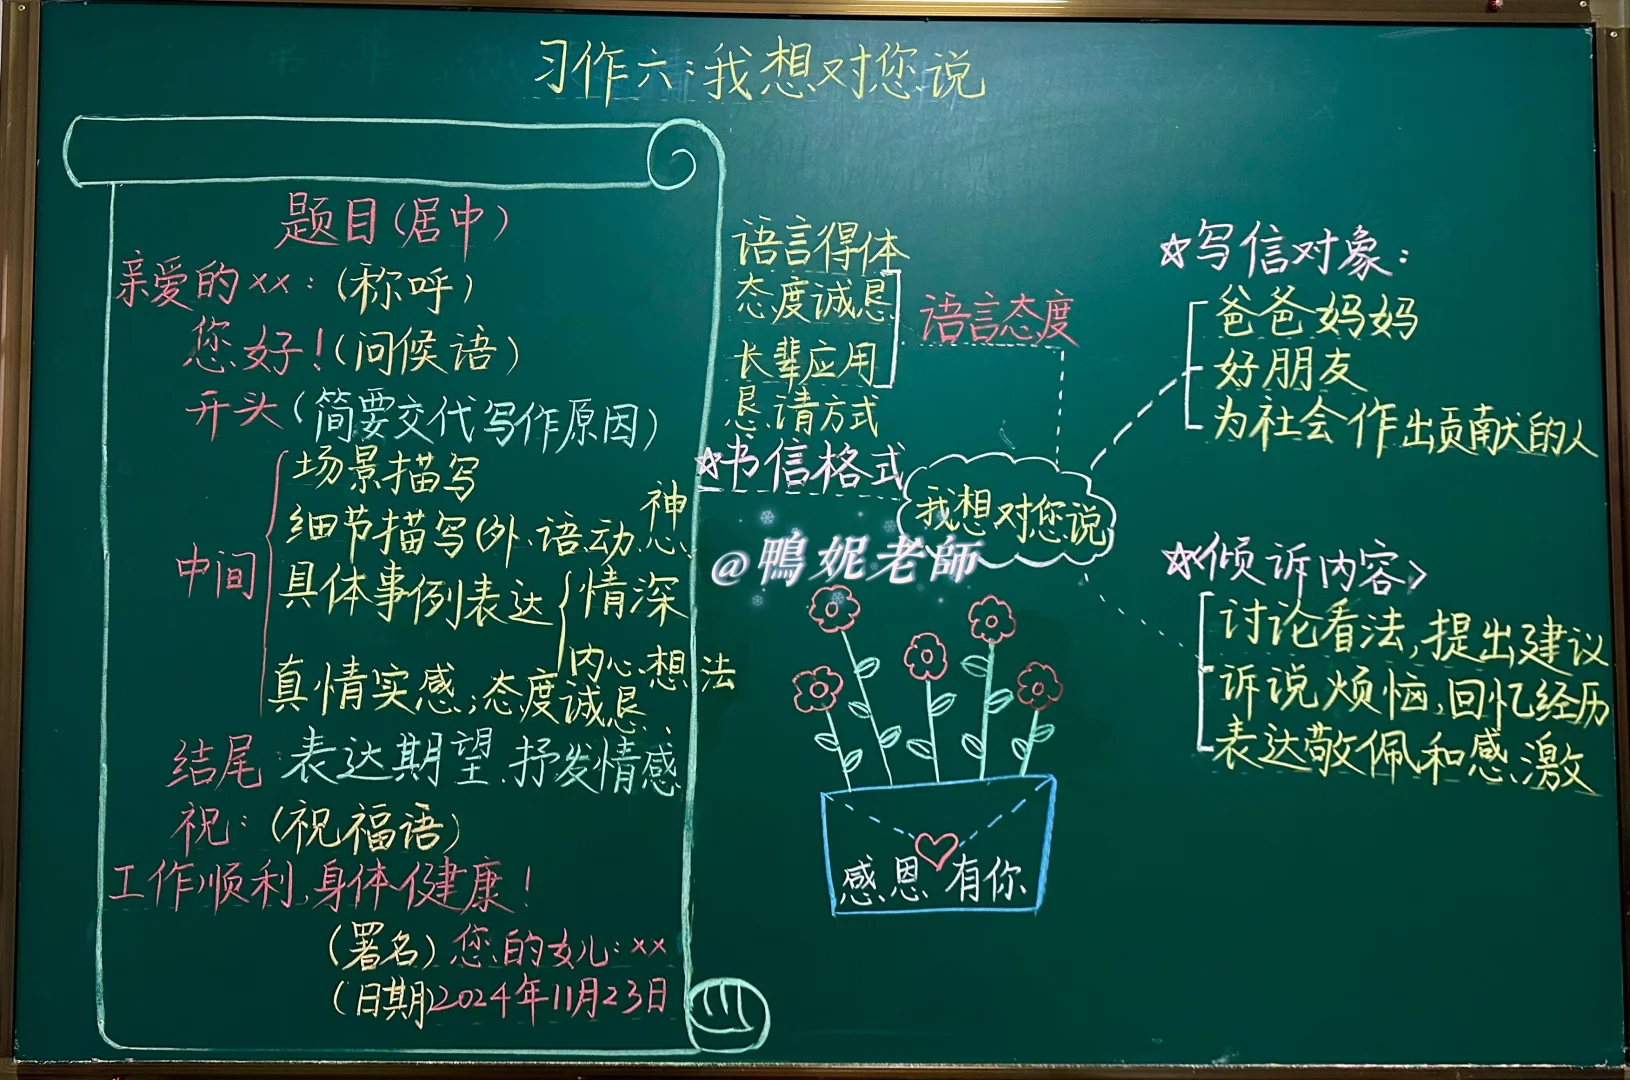 习作六:我想对您说
题目(居中)
亲爱的××:(称呼)
您好!(问候语)
开头(简要交代写作原因)
中间
场景描写
细节描写(外、语、动、神、心)
具体事例表达
情深
内心想法
真情实感;态度诚恳
结尾:表达期望.抒发情感
祝:(祝福语)
工作顺利,身体健康!
(署名)您的女儿:××
(日期)2024年11月23日
语言得体
态度诚恳
长辈应用
恳请方式
语言态度
☆书信格式
我想对您说
@鴨妮老師
感恩有你
☆写信对象:
爸爸妈妈
好朋友
为社会作出贡献的人
☆<倾诉内容>
讨论看法,提出建议
诉说烦恼,回忆经历
表达敬佩和感激